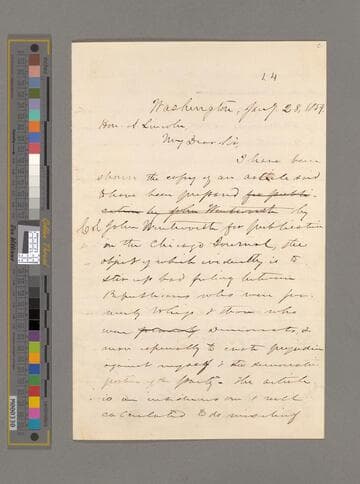 14
Washington, Jany. 28, 1859
Hon. A Lincoln
My Dear Sir,
I have been
shown the copy of an article said
to have been prepared for publi-
cation by John Wentworth by
Col. John Wentworth for publication
in the Chicago Journal, the
object of which evidently is to
stir up bad feeling between
Republicans who were for-
merly Whigs, & those who
were formerly Democrats, &
more especially to excite prejudice
against myself & the democratic
portion of the party. The article
is an insidious one & well
calculated to do mischief